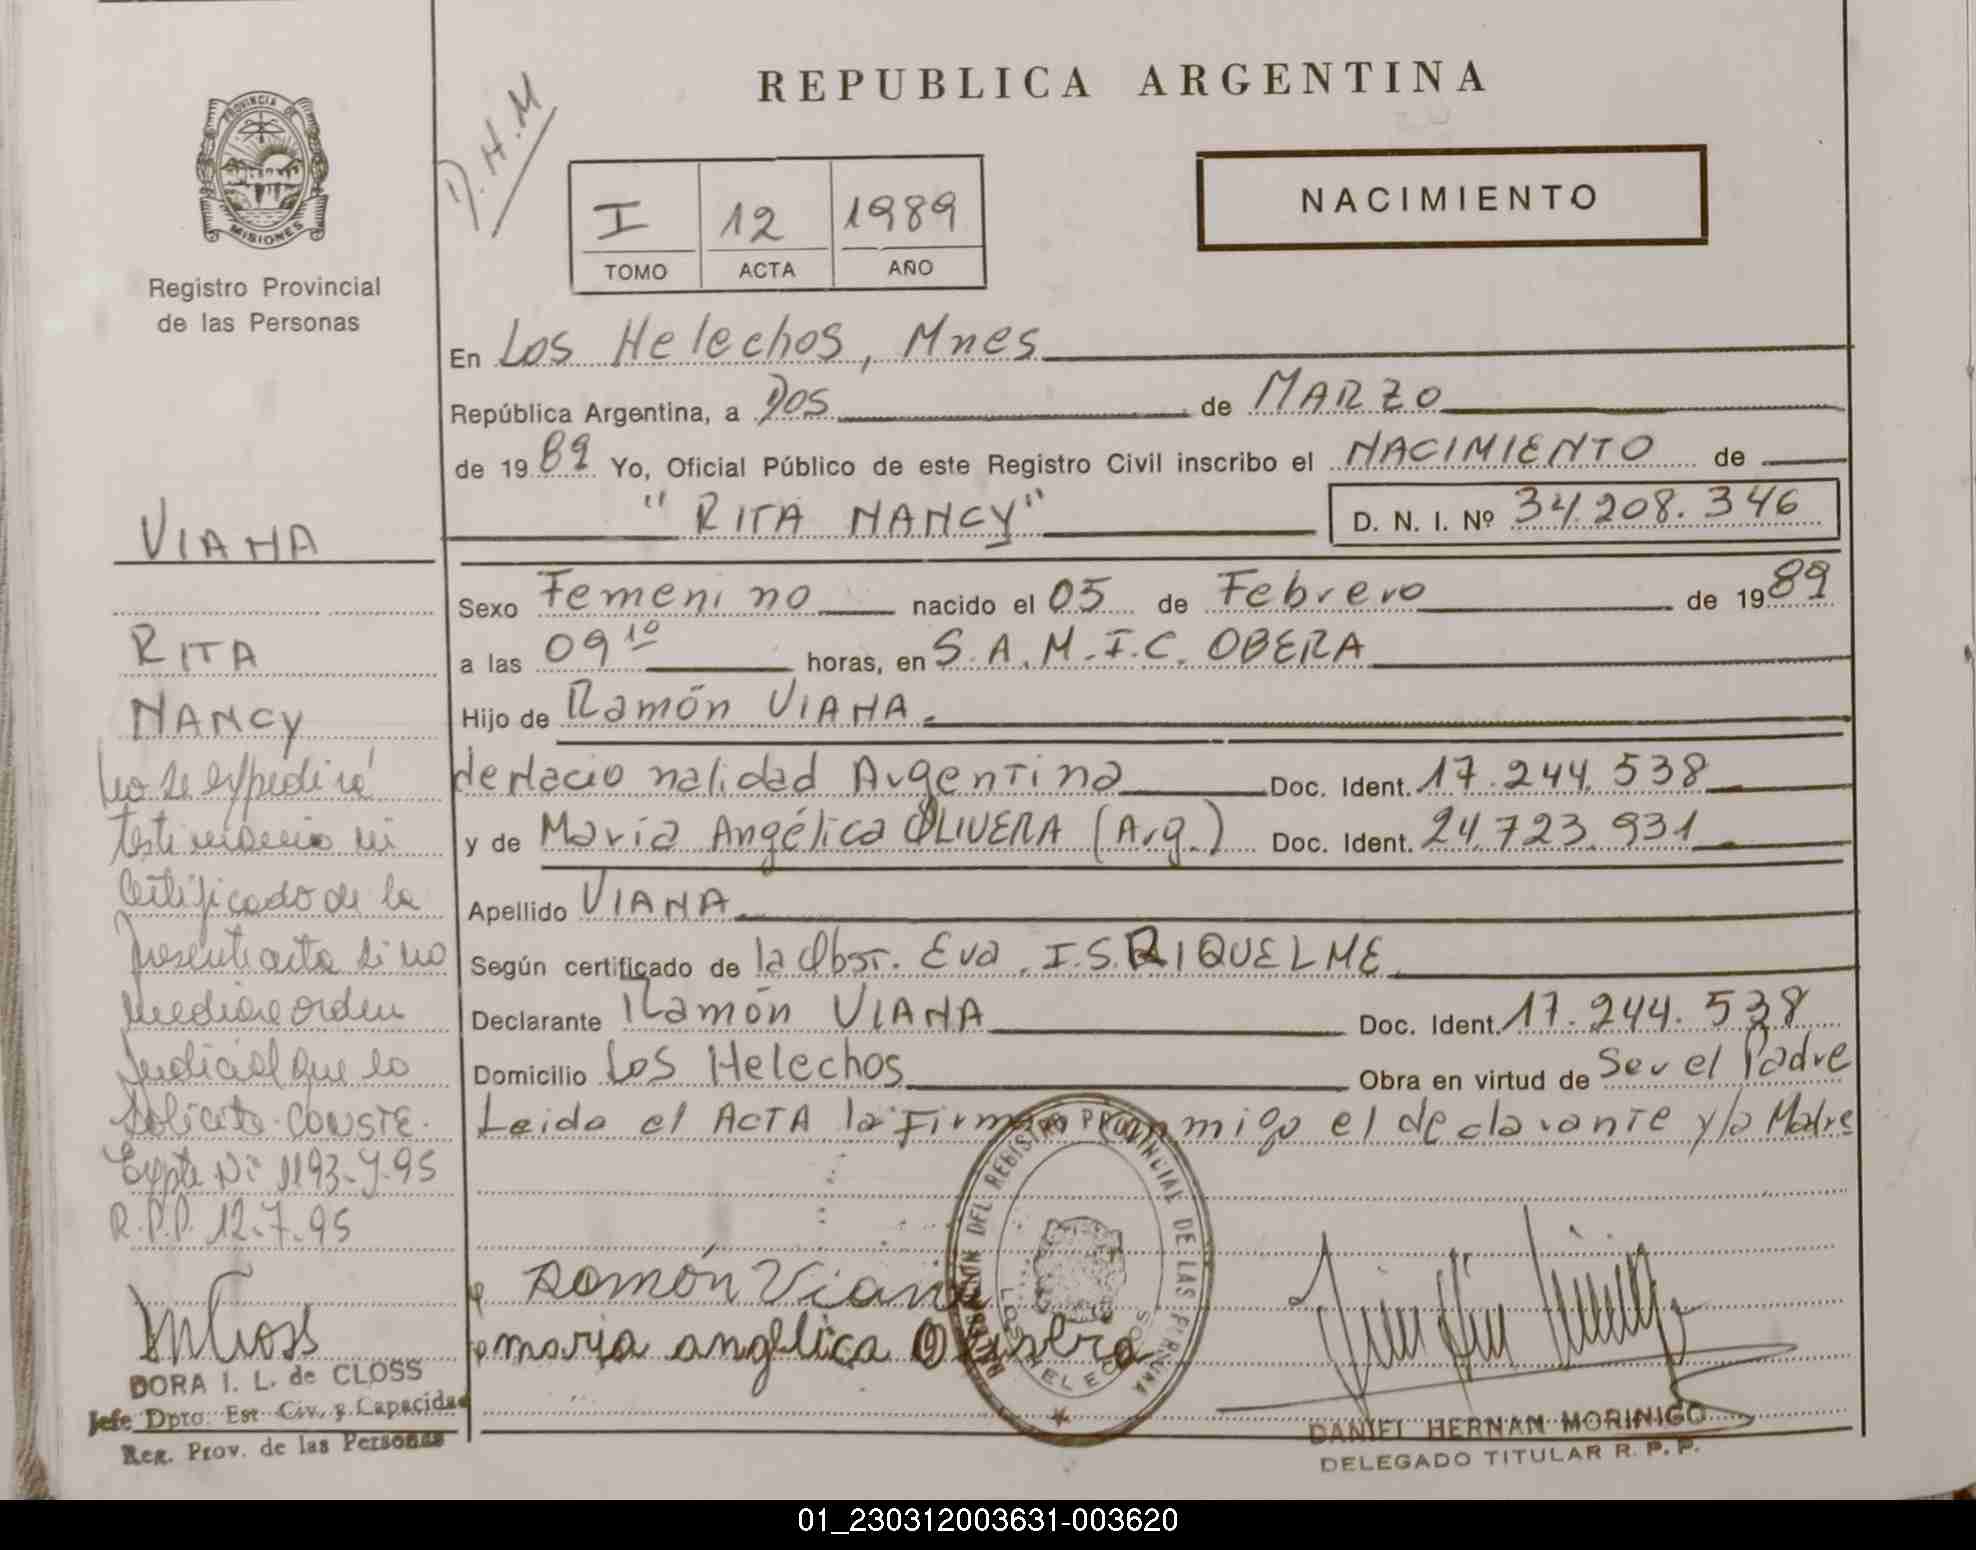 REPUBLICA ARGENTINA
D.H.M
PROVINCIA DE
MISIONES
Registro Provincial
de las Personas
I 12 1989
TOMO ACTA AÑO
NACIMIENTO
En Los Helechos, Mnes
República Argentina, a Dos de MARZO
de 1989 Yo, Oficial Público de este Registro Civil inscribo el NACIMIENTO de
"RITA NANCY" D. N. I. Nº 34.208.346
Sexo Femenino nacido el 05 de Febrero de 1989
a las 09 10 horas, en S.A.M.I.C. OBERA
Hijo de Ramón VIANA
de Nacionalidad Argentina Doc. Ident. 17.244.538
y de María Angélica OLIVERA (Arg.) Doc. Ident. 24.723.931
Apellido VIANA
Según certificado de la Obst. Eva. I.S. RIQUELME
Declarante Ramón VIANA Doc. Ident. 17.244.538
Domicilio Los Helechos Obra en virtud de Ser el Padre
Leida el ACTA la Firman conmigo el declarante y la Madre
Ramón Viana
maria angélica Olivera
DEL REGISTRO PROVINCIAL DE LAS PERSONAS
LOS HELECHOS
DANIEL HERNAN MORINIGO
DELEGADO TITULAR R. P. P.
VIANA
RITA
NANCY
No se expedirá
testimonio ni
Certificado de la
presente acta si no
mediare orden
Judicial que lo
Solicite. CONSTE.
Expte Nº 1193-Y-95
R.P.P. 12-7-95
DORA I. L. de CLOSS
Jefe Dpto. Est. Civ. y Capacidad
Reg. Prov. de las Personas
01_230312003631-003620